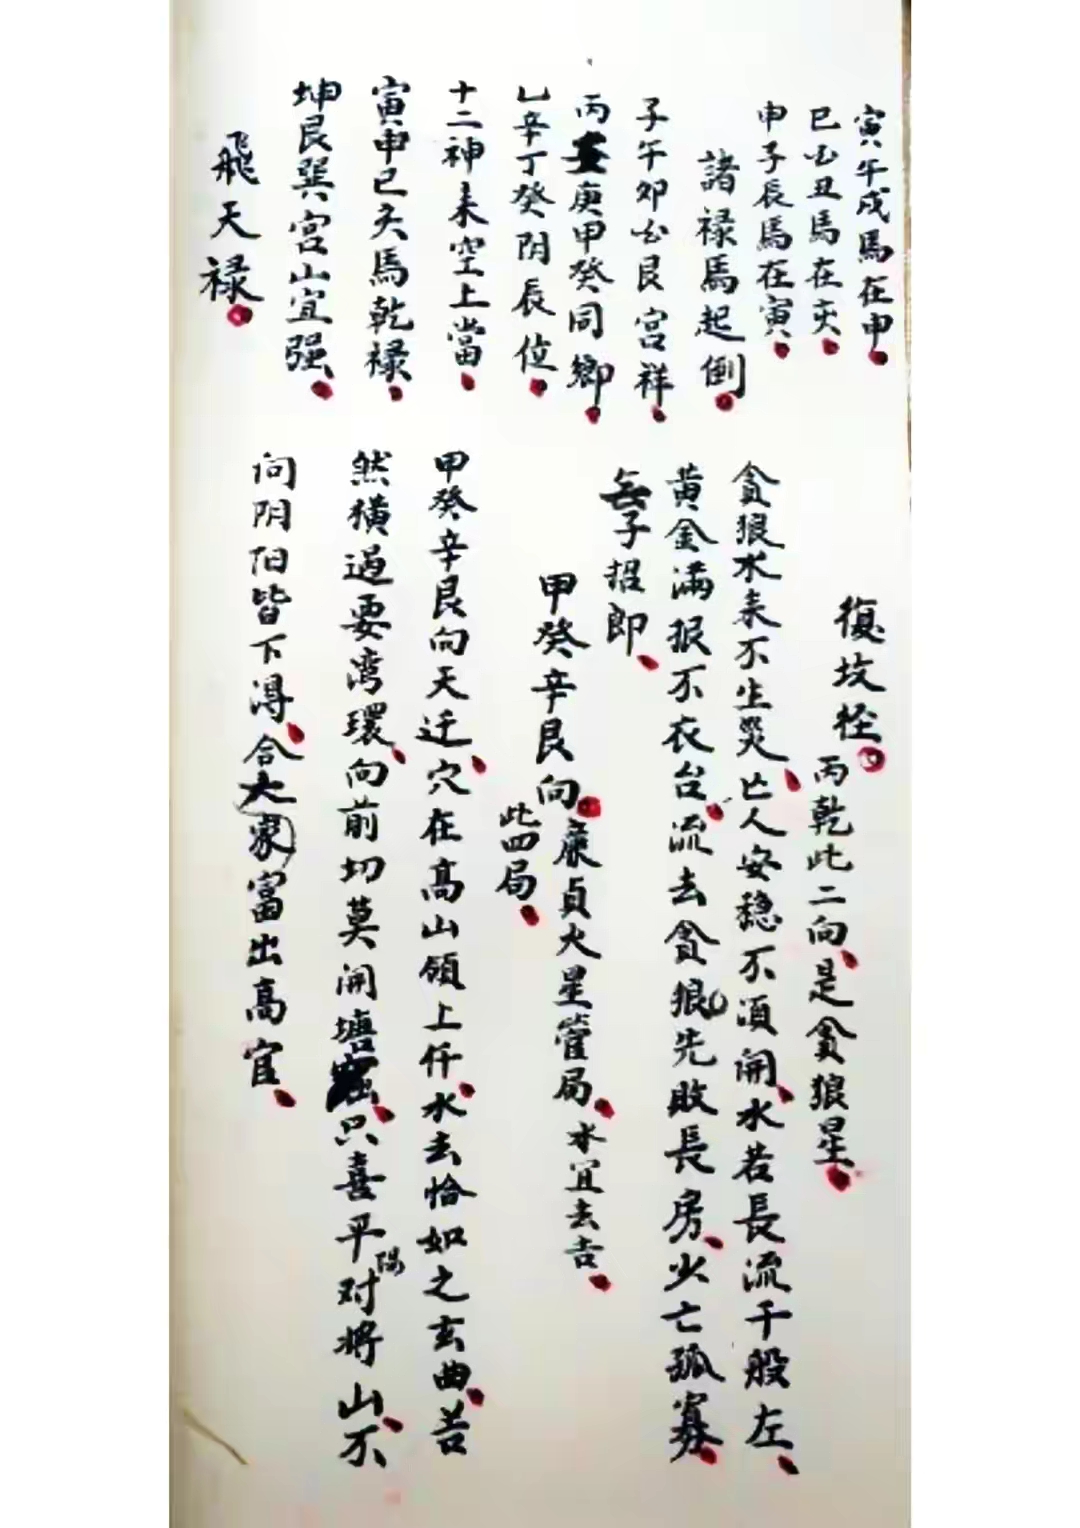 寅午戌馬在申
巳酉丑馬在亥
申子辰馬在寅
諸禄馬起倒
子午卯酉艮宮祥
丙庚甲癸同鄉
乙辛丁癸阴辰位
十二神来空上當
寅申巳亥馬乾禄
坤艮巽宮山宜强
飛天禄
復坟径
丙乾此二向是貪狼星
貪狼水来不生災亡人安穏不須開水若長流千般左
黄金滿抿不衣台流去貪狼先敗長房少亡孤寡
無子招郎
甲癸辛艮向
廉貞火星管局水宜去吉
此四局
甲癸辛艮向天迁穴在高山領上仟水去恰如之玄曲苦
然横過要湾環向前切莫開塘只喜平阳对将山不
问阴阳皆下淂合大家富出高官